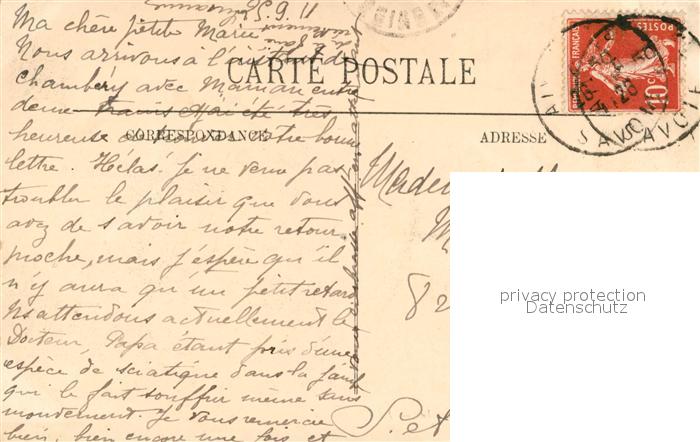 25.9.11
Ma chère petite Marie
Nous arrivons à l'instant de
chambéry avec Marian entre
deux trains J'ai été très
heureuse de votre bonne
lettre. Hélas! je ne veux pas
troubler le plaisir que vous
avez de savoir notre retour
proche, mais j'espère qu'il
n'y aura qu'un petit retard
Ns attendons actuellement le
Docteur, Papa étant pris d'une
espèce de sciatique dans la jambe
qui le fait souffrir même sans
mouvement. Je vous remercie
bien, bien encore une fois et
vous embrasse affectueusement
CARTE POSTALE
CORRESPONDANCE
ADRESSE
POSTES
10c
SAVOIE
Mademoiselle
M
82
S.et
privacy protection
Datenschutz